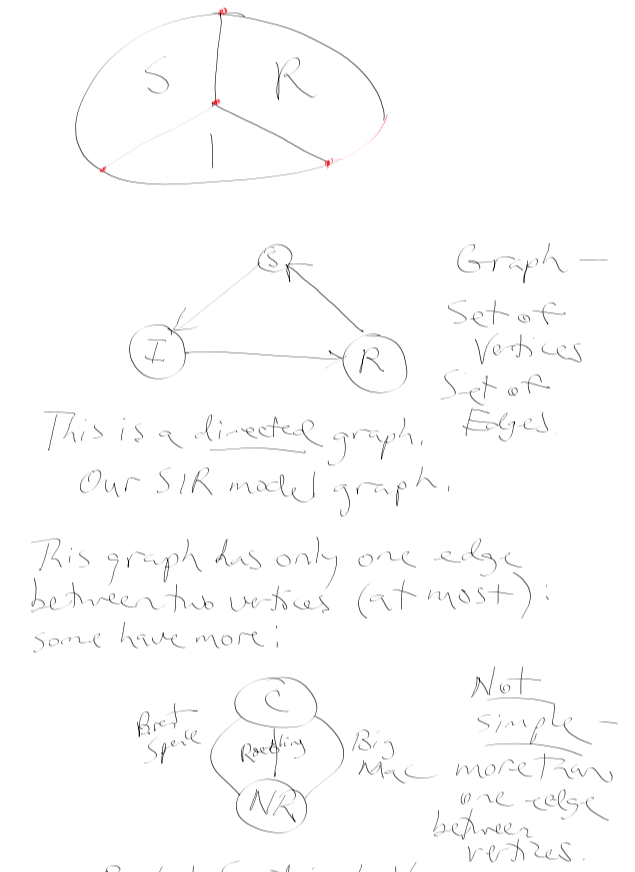 S
R
I
S
I
R
Graph —
Set of
Vertices
Set of
Edges.
This is a directed graph.
Our SIR model graph.
This graph has only one edge
between two vertices (at most):
some have more:
C
Brent
Spence
Roebling
Big
Mac
NR
Not
simple —
more than
one edge
between
vertices.